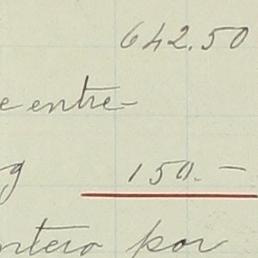 642.50
e entre-
g 150.-
ntero por